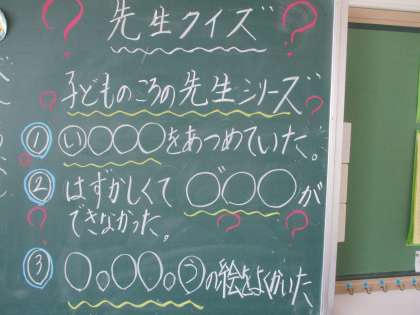 先生クイズ
子どものころの先生シリーズ
① い○○○をあつめていた。
② はずかしくて○゛○○が
できなかった。
③ ○。○○。うの絵をよくかいた